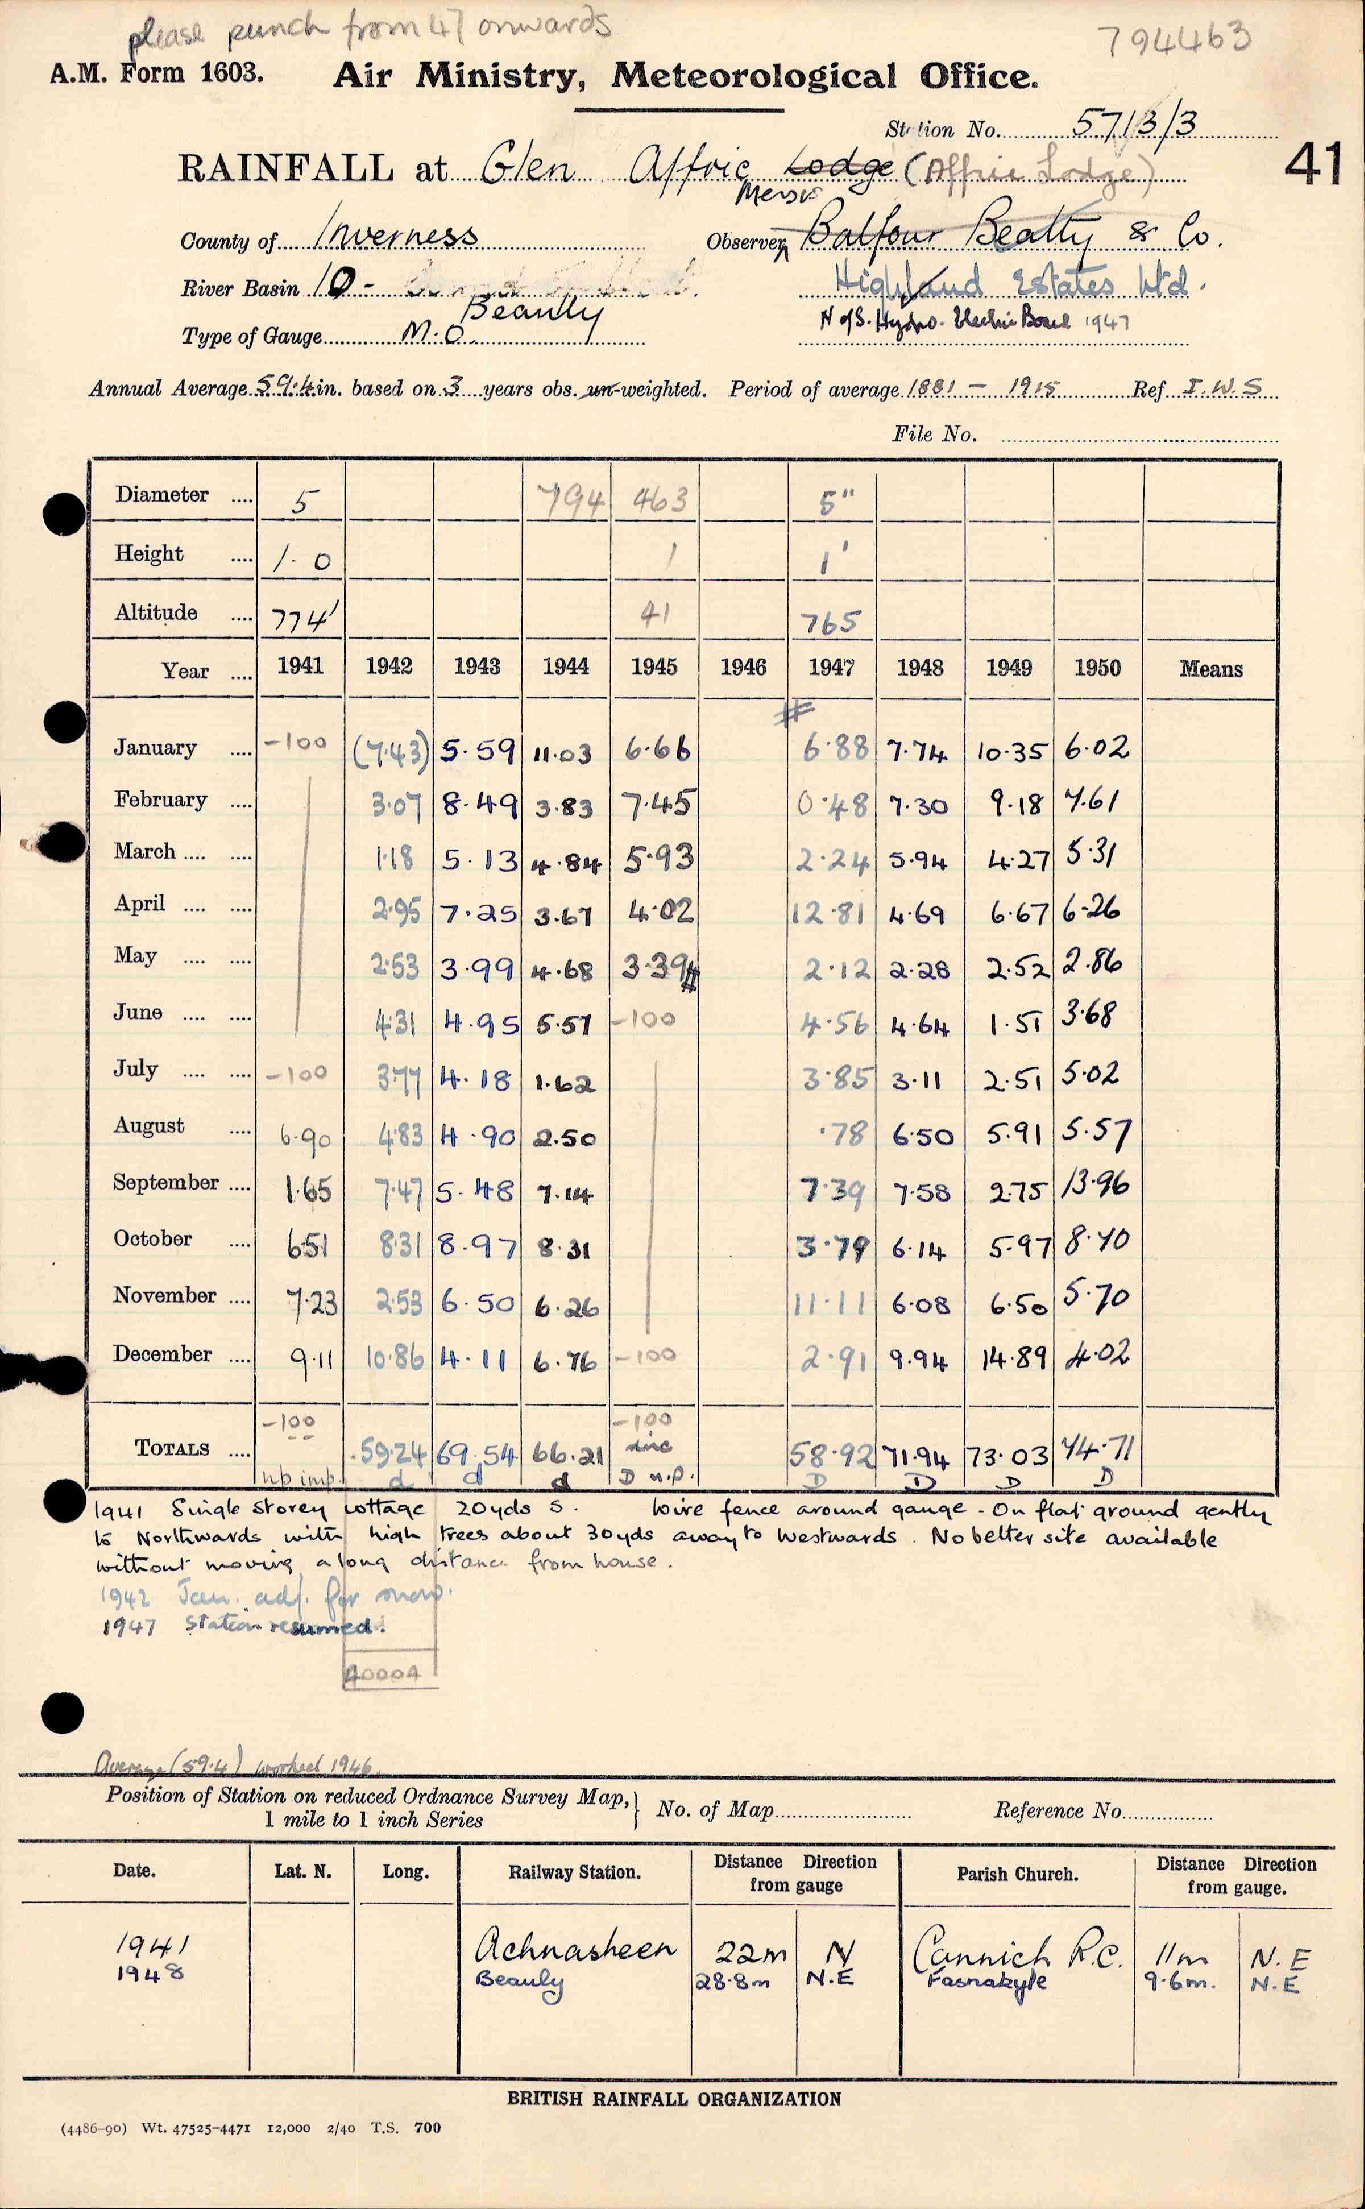 please punch from 47 onwards
794463
A.M. Form 1603. Air Ministry, Meteorological Office.
Station No. 5713/3
41
RAINFALL at Glen Affric Lodge (Affric Lodge)
County of Inverness Observer Messrs Balfour Beatty & Co.
River Basin 10 - Beauly Highland Estates Ltd.
Type of Gauge M.O. N of S. Hydro-Electric Board 1947
Annual Average 59.4 in. based on 3 years obs. un-weighted. Period of average 1881 - 1915 Ref I.W.S
File No.
Diameter .... 5 794 463 5"
Height .... 1.0 1 1'
Altitude .... 774' 41 765
Year .... 1941 1942 1943 1944 1945 1946 1947 1948 1949 1950 Means
January .... -100 (7.43) 5.59 11.03 6.66 6.88 7.74 10.35 6.02
February .... 3.07 8.49 3.83 7.45 0.48 7.30 9.18 7.61
March .... .... 1.18 5.13 4.84 5.93 2.24 5.94 4.27 5.31
April .... .... 2.95 7.25 3.67 4.02 12.81 4.69 6.67 6.26
May .... .... 2.53 3.99 4.68 3.39 2.12 2.28 2.52 2.86
June .... .... 4.31 4.95 5.57 -100 4.56 4.64 1.51 3.68
July .... .... -100 3.77 4.18 1.62 3.85 3.11 2.51 5.02
August .... 6.90 4.83 4.90 2.50 .78 6.50 5.91 5.57
September .... 1.65 7.47 5.48 7.14 7.39 7.58 2.75 13.96
October .... 6.51 8.31 8.97 8.31 3.79 6.14 5.97 8.70
November .... 7.23 2.53 6.50 6.26 11.11 6.08 6.50 5.70
December .... 9.11 10.86 4.11 6.76 -100 2.91 9.94 14.89 4.02
-100 -100
TOTALS .... 59.24 69.54 66.21 inc 58.92 71.94 73.03 74.71
np imp. d d d D n.p. D D D D
1941 Single storey cottage 20yds S. Wire fence around gauge - On flat ground gently
to Northwards with high trees about 30yds away to Westwards. No better site available
without moving a long distance from house.
1942 Jan. adj. for snow.
1947 Station resumed.
40004
Average (59.4) worked 1946.
Position of Station on reduced Ordnance Survey Map, 1 mile to 1 inch Series No. of Map Reference No.
Date. Lat. N. Long. Railway Station. Distance Direction from gauge Parish Church. Distance Direction from gauge.
1941 Achnasheen 22m N Cannich R.C. 11m N.E
1948 Beauly 28.8m N.E Fasnakyle 9.6m. N.E
BRITISH RAINFALL ORGANIZATION
(4486-90) Wt. 47525-4471 12,000 2/40 T.S. 700